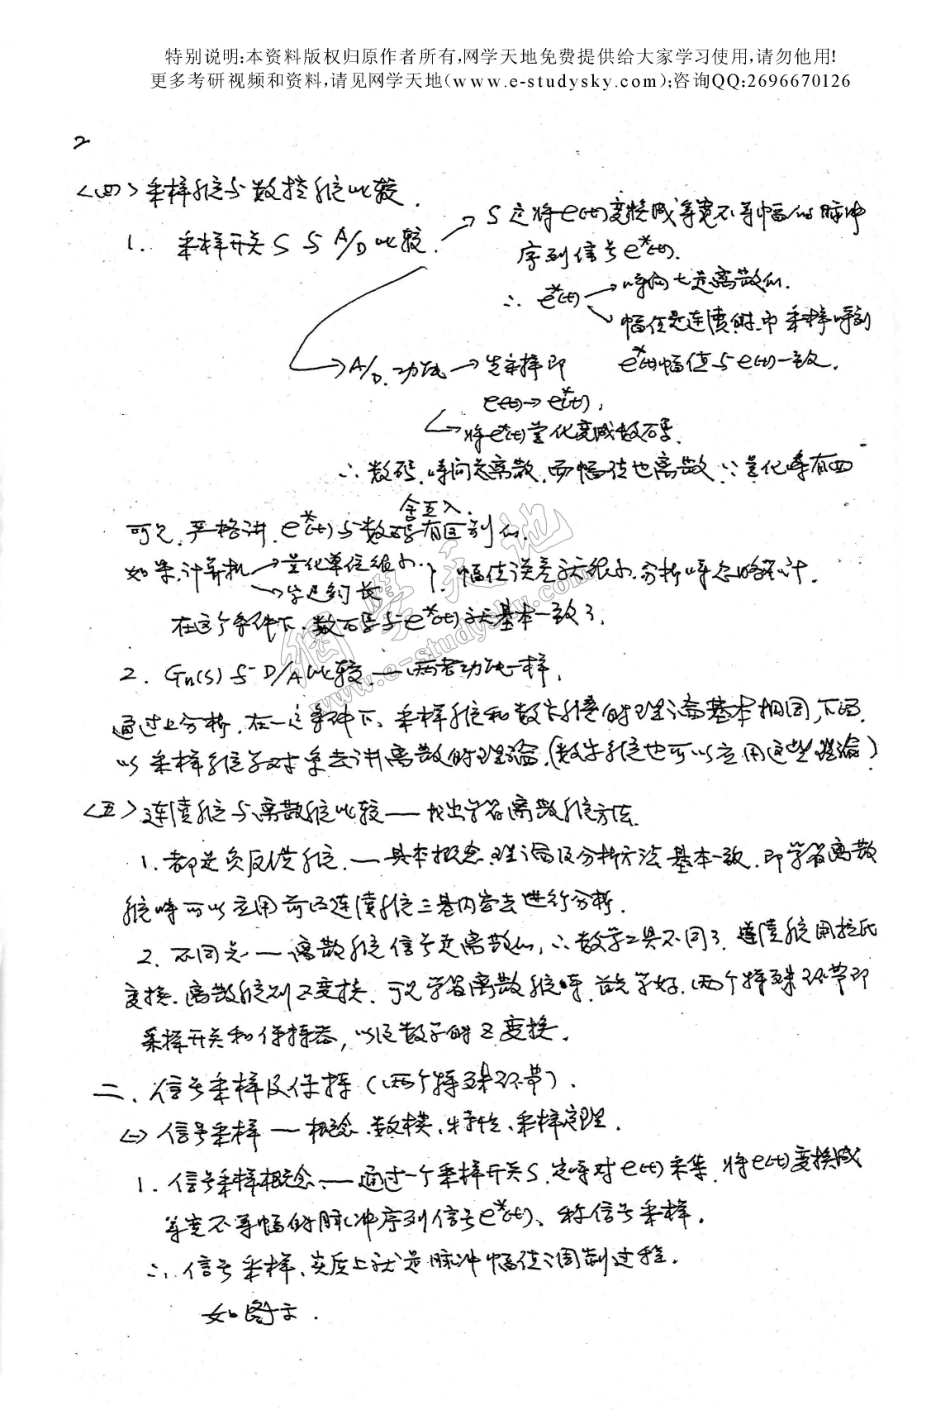 特别说明:本资料版权归原作者所有,网学天地免费提供给大家学习使用,请勿他用!
更多考研视频和资料,请见网学天地(www.e-studysky.com);咨询QQ:2696670126
2
<四>采样系统与数控系统比较.
1. 采样开关S与A/D比较.
S是将e(t)变换成等宽不等幅的脉冲
序列信号e*(t).
∴ e*(t) 时间上是离散的.
幅值是连续的,即采样时刻
e*(t)幅值与e(t)一致.
A/D.功能 先采样即
e(t)→e*(t),
将e*(t)量化变成数码.
∴数码.时间是离散,而幅值也离散,∵量化时有四
舍五入.
可见,严格讲,e*(t)与数码是有区别的.
如果,计算机 量化单位很小
字足够长
幅值误差就很小,分析时忽略不计.
在这个条件下,数码与e*(t)就基本一致了.
2. Gh(s)与D/A比较.—两者功能一样.
通过上分析,在一定条件下,采样系统和数字系统的理论基本相同,下面
以采样系统为对象去讲离散的理论,(数字系统也可以应用这些理论)
<五>连续系统与离散系统比较——找出学习离散系统方法.
1.都是负反馈系统.—基本概念.理论及分析方法基本一致.即学习离散
系统时可以应用前面连续系统三基内容去进行分析.
2. 不同点——离散系统信号是离散的,∴数学工具不同了,连续系统用拉氏
变换.离散系统则Z变换.可见学习离散系统时,首先学好.两个特殊环节即
采样开关和保持器,以及数学的Z变换.
二.信号采样及保持(两个特殊环节).
<一>信号采样—概念.数模.特性.采样定理.
1.信号采样概念—通过一个采样开关S,定时对e(t)采集,将e(t)变换成
等宽不等幅的脉冲序列信号e*(t)、称信号采样.
∴信号采样,实质上就是脉冲幅值调制过程.
如图示.
網学天地
www.e-studysky.com